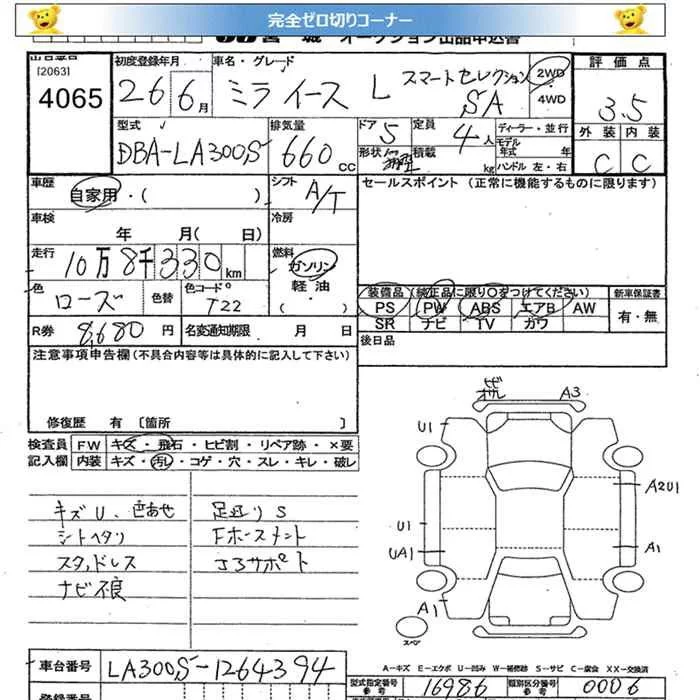 完全ゼロ切りコーナー
オークション出品申込書
出品番号
[2063]
4065
初度登録年月
26 6月
車名・グレード
ミライース L スマートセレクション SA
2WD
4WD
評価点
3.5
外装 内装
C C
型式
DBA-LA300S
排気量
660 CC
ドア 5
定員 4人
形状
積載 kg
ディーラー・並行
モデル年式 年
ハンドル 左・右
車歴
自家用・( )
シフト
A/T
セールスポイント (正常に機能するものに限ります)
車検
年 月( 日)
冷房
走行
10万8千330km
燃料
ガソリン
軽油
( )
色
ローズ
色替
色コードNo
T22
装備品 (純正品に限り○をつけてください)
PS PW ABS エアB AW
SR ナビ TV カワ
新車保証書
有・無
R券 8,680円
名変通知期限 月 日
後日品
注意事項申告欄 (不具合内容等は具体的に記入して下さい)
修復歴 有 〔箇所 〕
検査員記入欄
FW キズ・飛石・ヒビ割・リペア跡・×要
内装 キズ・汚れ・コゲ・穴・スレ・キレ・破レ
キズU、色あせ
シートヘタリ
スタッドレス
ナビ不良
足廻りS
Fホースメント
コアサポート
A3
U1
A2U1
U1
UA1
A1
A1
スペア
A-キズ E-エクボ U-凹み W-補修跡 S-サビ C-腐食 XX-交換済
車台番号
LA300S-1264394
型式指定番号
参考
16986
類別区分番号
参考
0006
登録番号